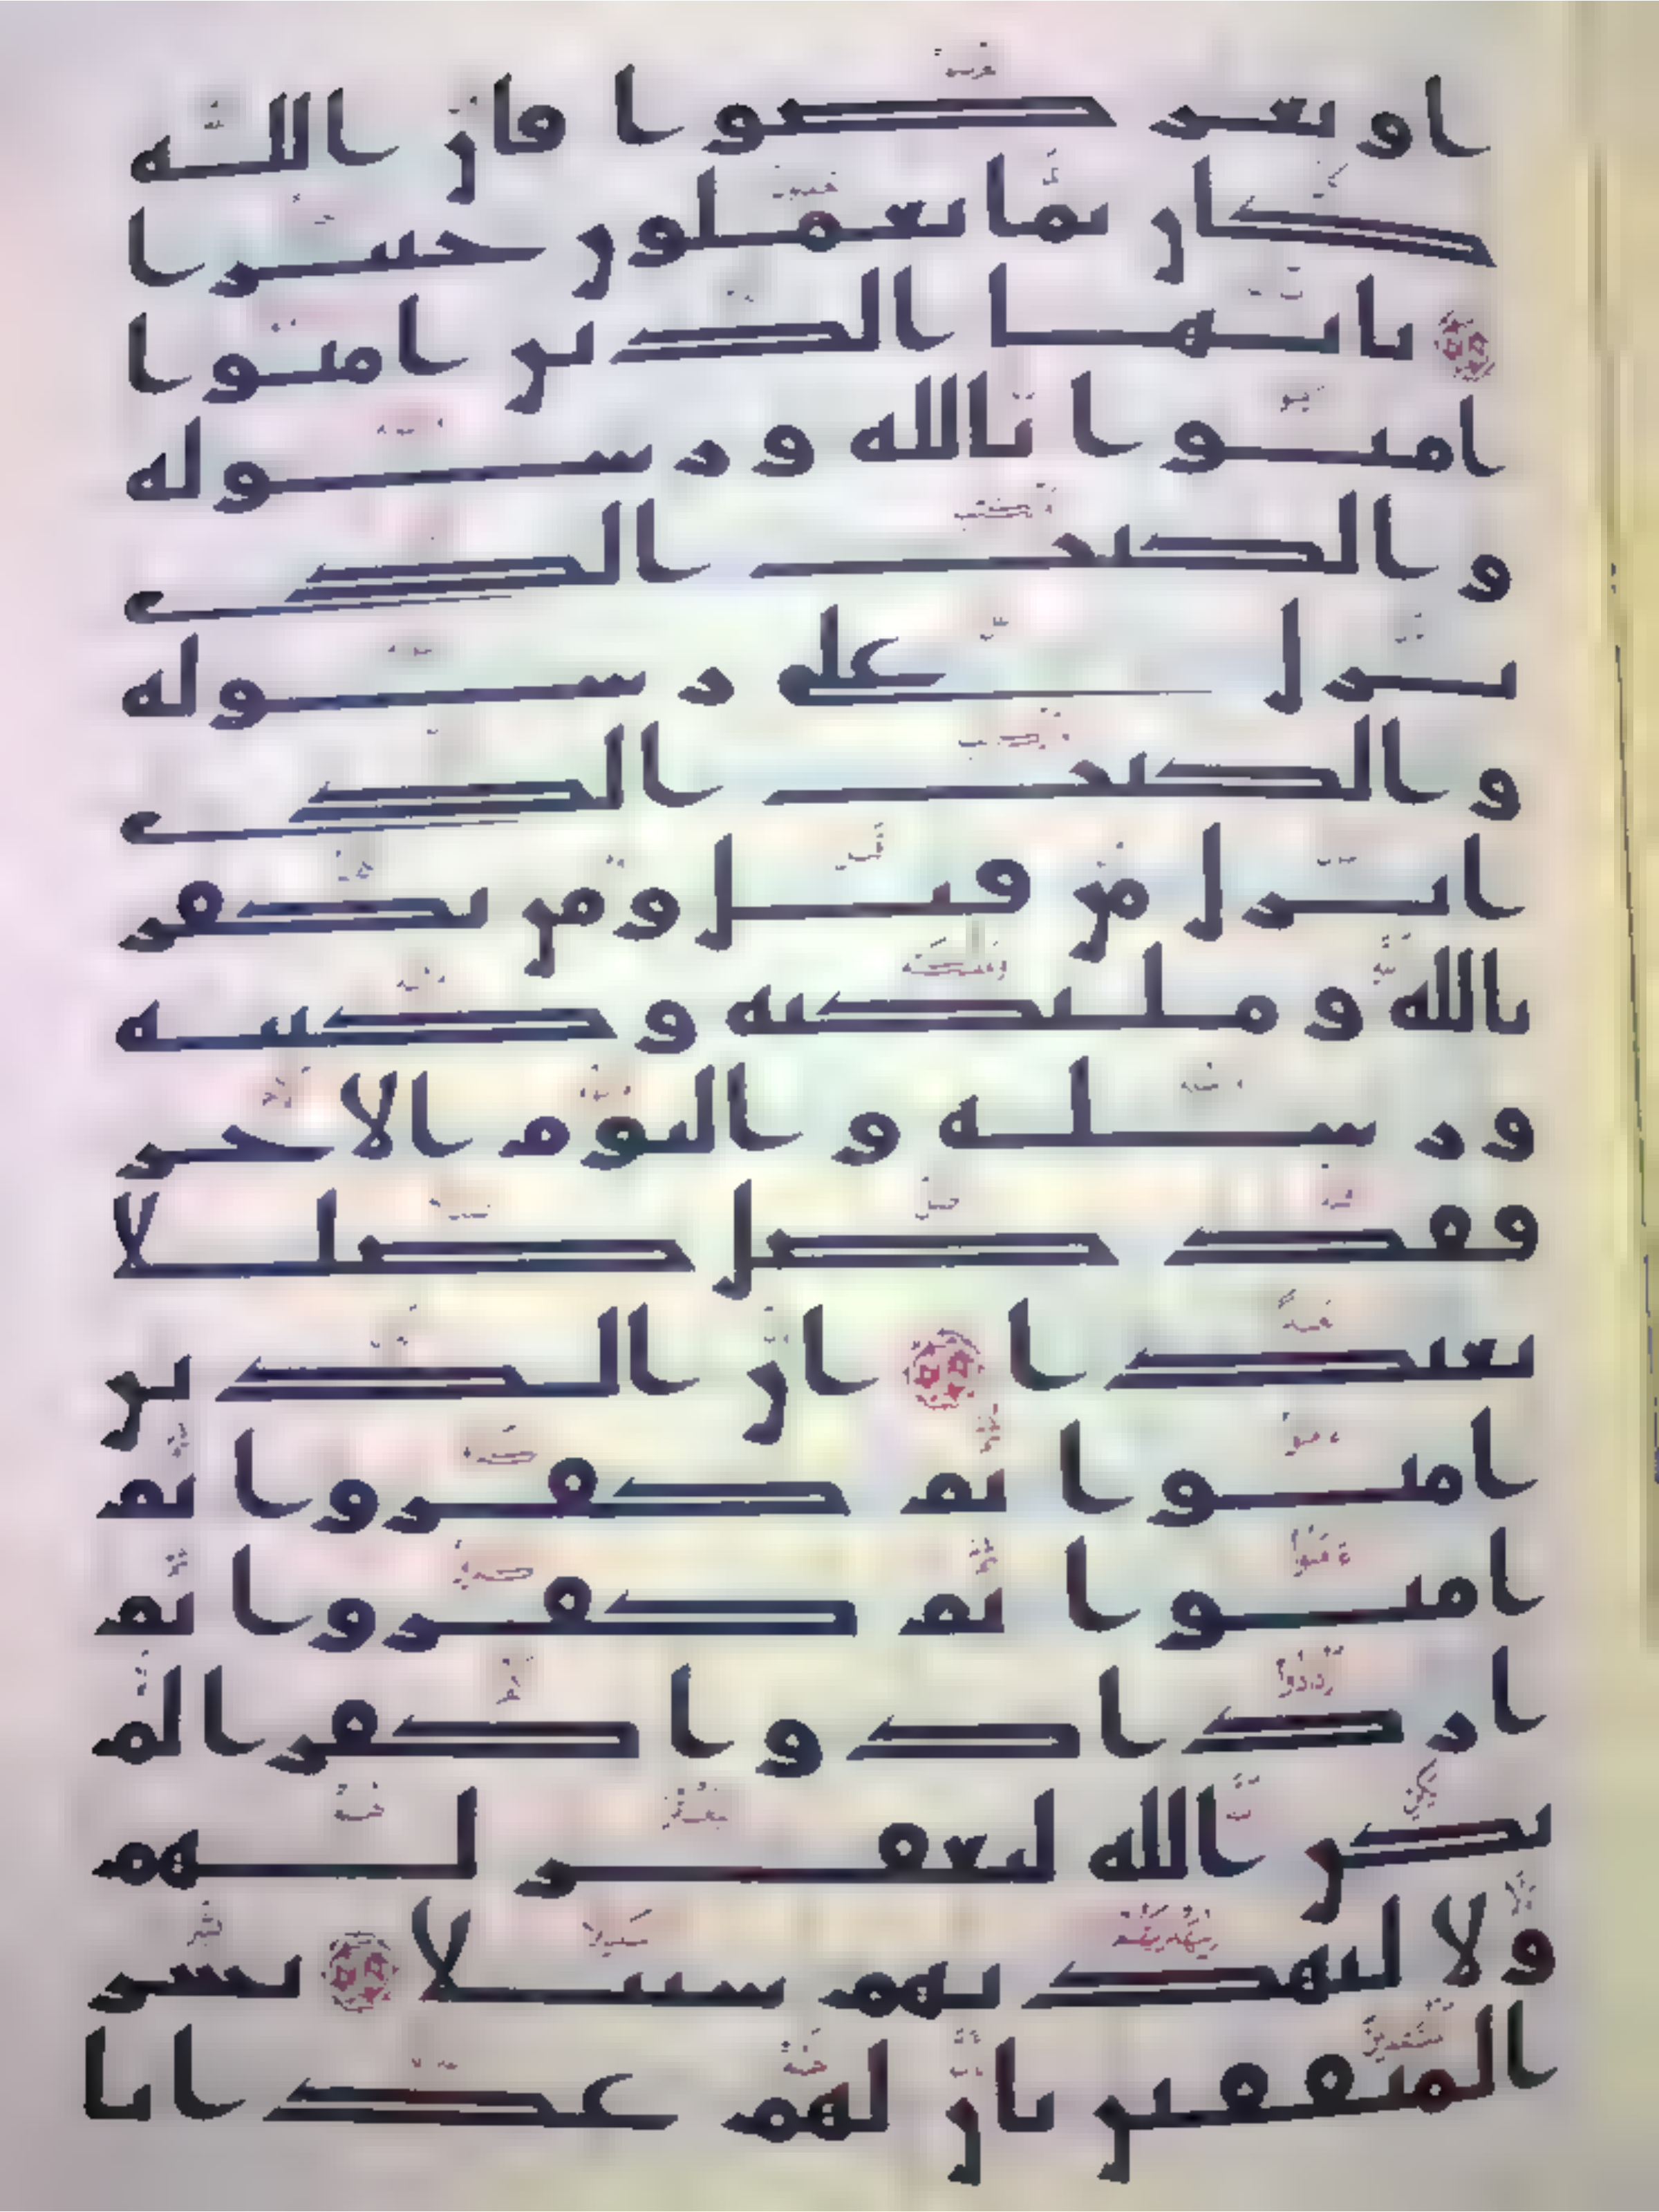 او تعرضوا فان الله
كان بما تعملون خبيرا
يايها الذين امنوا
امنوا بالله ورسوله
والكتب الذي
نزل على رسوله
والكتب الذي
انزل من قبل ومن يكفر
بالله ومليكته وكتبه
ورسله واليوم الاخر
فقد ضل ضللا
بعيدا ان الذين
امنوا ثم كفروا ثم
امنوا ثم كفروا ثم
ازدادوا كفرا لم
يكن الله ليغفر لهم
ولا ليهديهم سبيلا بشر
المنفقين بان لهم عذابا